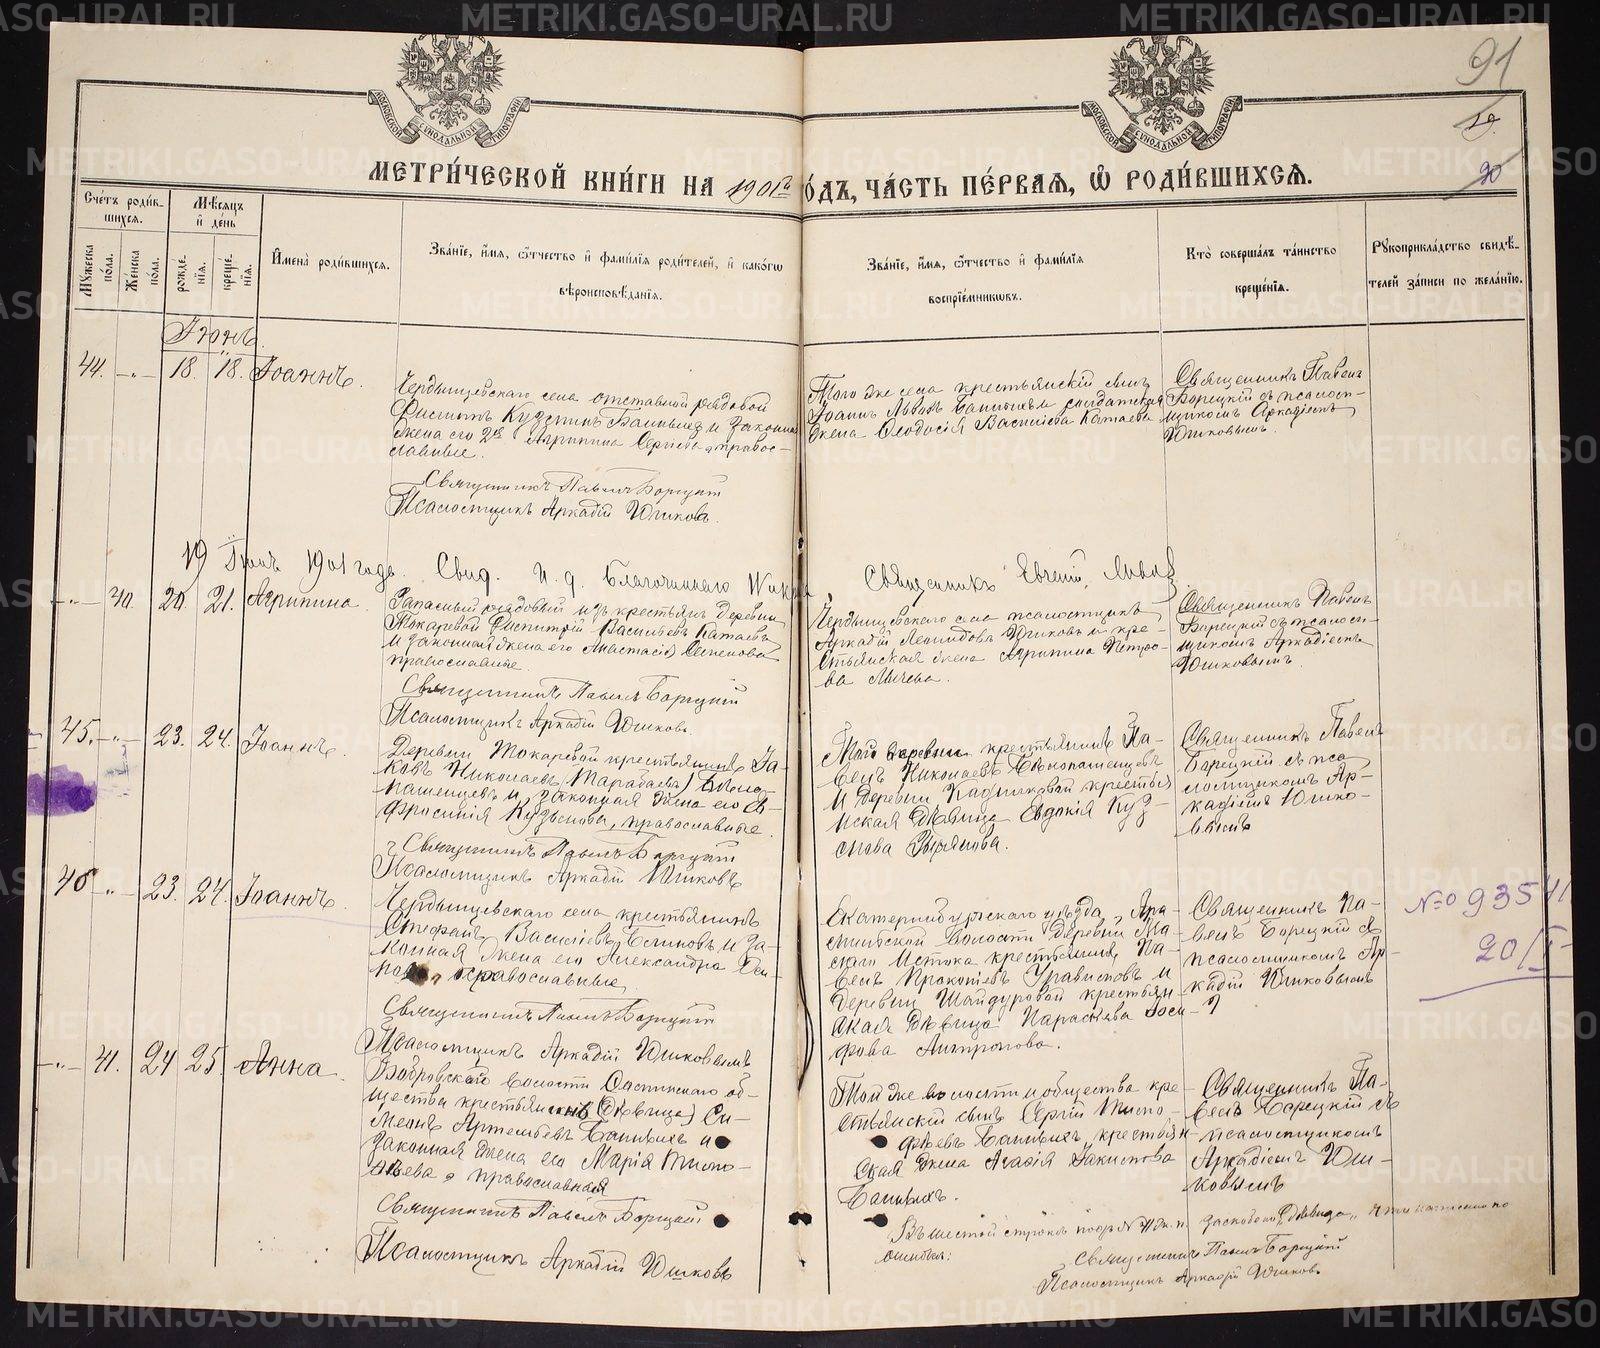 METRIKI.GASO-URAL.RU
91
19.
20
МОСКОВСКОЙ СѴНОДАЛЬНОЙ ТИПОГРАФІИ
МОСКОВСКОЙ СѴНОДАЛЬНОЙ ТИПОГРАФІИ
МЕТРИ́ЧЕСКОЙ КНИ́ГИ НА 1901й ГО́ДЪ, ЧА́СТЬ ПЕ́РВАѦ, Ѡ РОДИ́ВШИХСѦ.
Сче́тъ роди́в-
шихсѧ.
Мꙋжеска по́ла.
Же́нска по́ла.
Мѣ́сѧцъ
и де́нь
рожде́-
нїѧ.
креще́-
нїѧ.
И҆мена̀ роди́вшихсѧ.
Зва́нїе, и҆́мѧ, ѻ҆́тчество и҆ фами́лїѧ роди́телей, и҆ како́гѡ
вѣроисповѣ́данїѧ.
Зва́нїе, и҆́мѧ, ѻ҆́тчество и҆ фами́лїѧ
воспрїе́мникѡвъ.
Кто̀ соверша́лъ та́инство
креще́нїѧ.
Рꙋкоприкла́дство свидѣ́-
телей за́писи по жела́нїю.
Іюнь.
44. -„- 18. 18. Іоаннъ.
села отставной рядовой
и законная
жена его 2й Агрипина православные.
Священникъ Павелъ Борецкій
Псаломщикъ Аркадій Юшковъ.
Того же села крестьянскій сынъ
Іоаннъ Львовъ Баннихъ и солдатская
жена Ѳеодосія Васильева Катаева
Священникъ Павелъ
Борецкій съ псалом-
щикомъ Аркадіемъ
Юшковымъ.
19 Іюля 1901 года. Свид. И. д. Благочиннаго Священникъ Евгеній
-„- 40. 20. 21. Агрипина.
Запасный рядовый изъ крестьянъ деревни
Токаревой Димитрій Васильевъ Катаевъ
и законная жена его Анастасія Семенова
православные.
Священникъ Павелъ Борецкій
Псаломщикъ Аркадій Юшковъ.
села псаломщикъ
Аркадій Леонидовъ Юшковъ и кре-
стьянская жена Агрипина Петро-
ва
Священникъ Павелъ
Борецкій съ псалом-
щикомъ Аркадіемъ
Юшковымъ.
45. -„- 23. 24. Іоаннъ.
Деревни Токаревой крестьянинъ Іа-
ковъ Николаевъ (Тарабаевъ) Бѣло-
пашенцевъ и законная жена его Ев-
фросинія Кузьмова, православные.
Священникъ Павелъ Борецкій
Псаломщикъ Аркадій Юшковъ
Той деревни крестьянинъ Па-
велъ Николаевъ Бѣлопашенцевъ
и деревни крестьян
ская дѣвица Евдокія Куз-
мова
Священникъ Павелъ
Борецкій съ пса-
ломщикомъ Ар-
кадіемъ Юшко-
вымъ
46 -„- 23. 24. Іоаннъ.
села крестьянинъ
Стефанъ Васильевъ Блиновъ и за-
конная жена его Александра
православные.
Священникъ Павелъ Борецкій
Псаломщикъ Аркадій Юшковымъ
Екатеринбургскаго уѣзда, Ара-
мильской волости деревни Ма-
лаго Истока крестьянинъ Па-
велъ Прокопьевъ и
деревни Шайдуровой крестьян-
ская дѣвица Параскева
Антропова.
Священникъ Па-
велъ Борецкій съ
псаломщикомъ Ар-
кадій Юшковымъ
№ 935
20/I
-„- 41. 24 25. Анна.
Бобровской волости об-
щества крестьянинъ (дѣвица) Си-
меонъ Артемьевъ Банныхъ и
законная жена его Марія Тимо-
ѳеева, православная
Священникъ Павелъ Борецкій
Псаломщикъ Аркадій Юшковъ
Той же волости и общества кре-
стьянскій сынъ Сергій Тимо-
ѳеевъ Банныхъ, крестьян-
ская жена Агафія
Банныхъ.
Священникъ Па-
велъ Борецкій съ
псаломщикомъ
Аркадіемъ Юш-
ковымъ
Въ шестой строкѣ подъ № 41 „дѣвица„
ошибкѣ:
Священникъ Павелъ Борецкій
Псаломщикъ Аркадій Юшковъ.